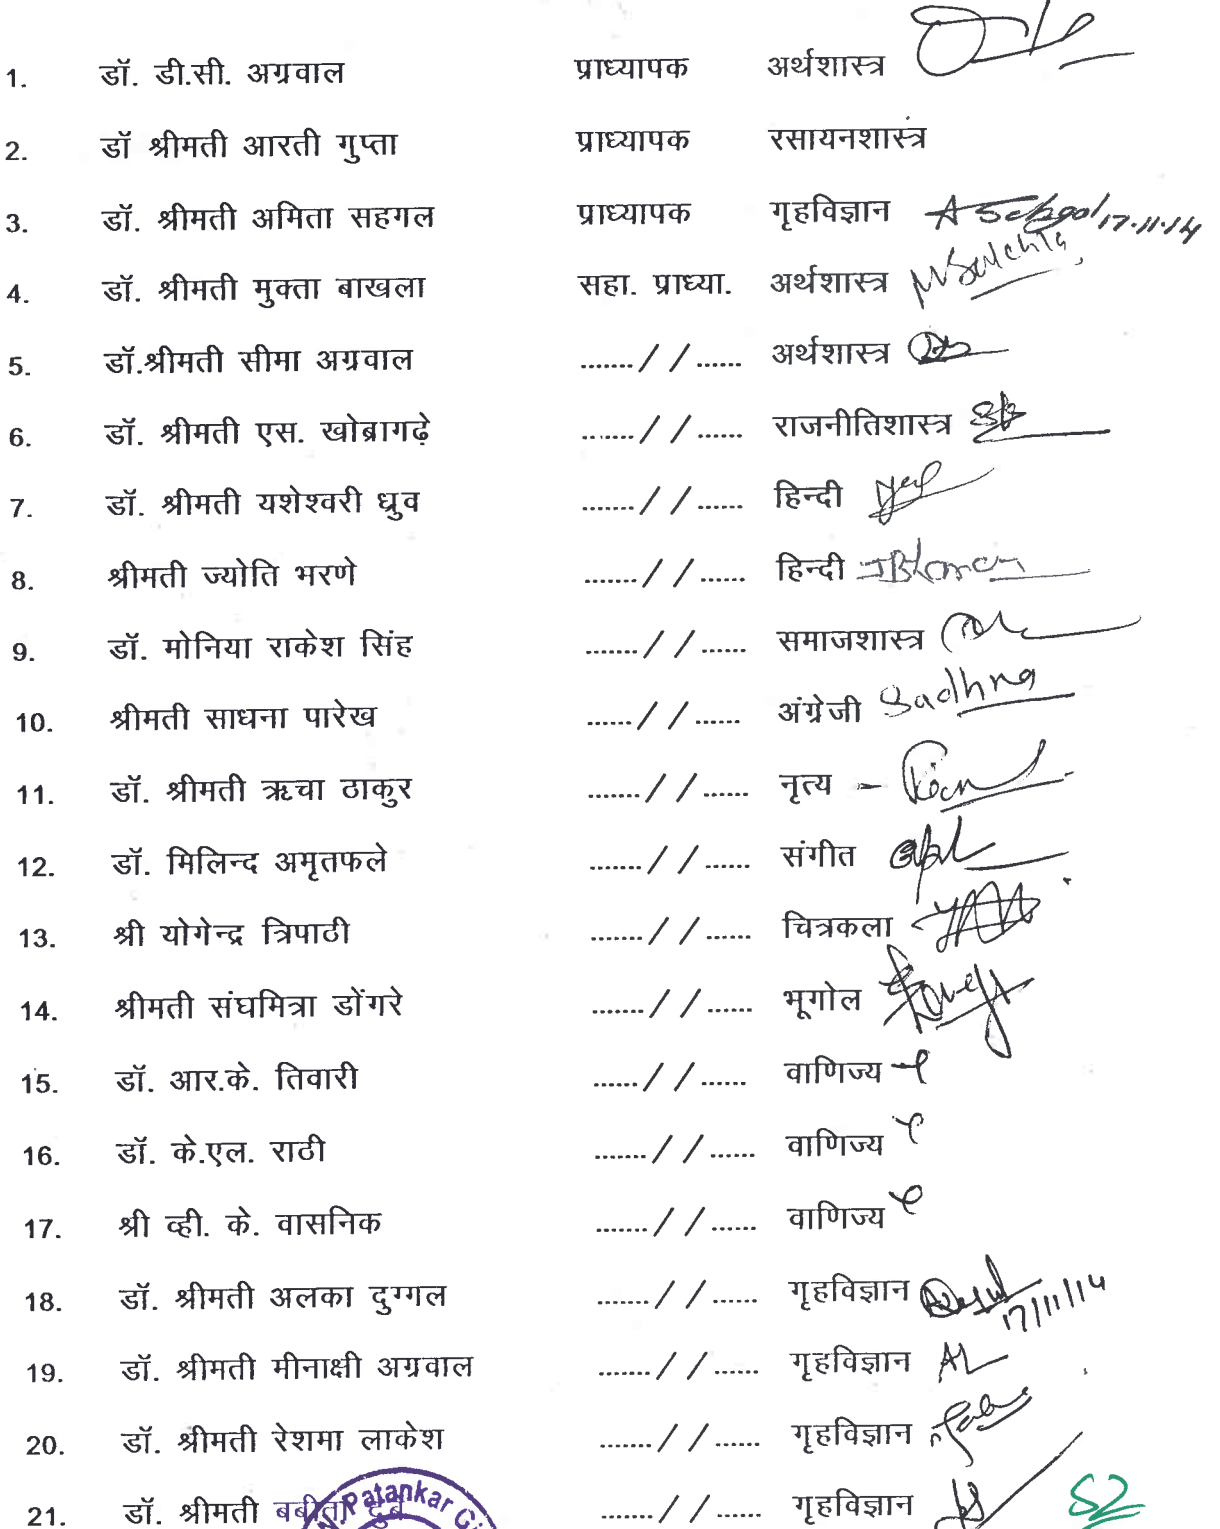 1. डॉ. डी.सी. अग्रवाल प्राध्यापक अर्थशास्त्र
2. डॉ श्रीमती आरती गुप्ता प्राध्यापक रसायनशास्त्र
3. डॉ. श्रीमती अमिता सहगल प्राध्यापक गृहविज्ञान 17.11.14
4. डॉ. श्रीमती मुक्ता बाखला सहा. प्राध्या. अर्थशास्त्र
5. डॉ.श्रीमती सीमा अग्रवाल ......./ / ...... अर्थशास्त्र
6. डॉ. श्रीमती एस. खोब्रागढ़े ......./ / ...... राजनीतिशास्त्र
7. डॉ. श्रीमती यशेश्वरी ध्रुव ......./ / ...... हिन्दी
8. श्रीमती ज्योति भरणे ......./ / ...... हिन्दी
9. डॉ. मोनिया राकेश सिंह ......./ / ...... समाजशास्त्र
10. श्रीमती साधना पारेख ....../ / ...... अंग्रेजी Sadhna
11. डॉ. श्रीमती ऋचा ठाकुर ......./ / ...... नृत्य –
12. डॉ. मिलिन्द अमृतफले ......./ / ...... संगीत
13. श्री योगेन्द्र त्रिपाठी ......./ / ...... चित्रकला
14. श्रीमती संघमित्रा डोंगरे ......./ / ...... भूगोल
15. डॉ. आर.के. तिवारी ....../ / ...... वाणिज्य
16. डॉ. के.एल. राठी ......./ / ...... वाणिज्य
17. श्री व्ही. के. वासनिक ......./ / ...... वाणिज्य
18. डॉ. श्रीमती अलका दुग्गल ......./ / ...... गृहविज्ञान 17/11/14
19. डॉ. श्रीमती मीनाक्षी अग्रवाल ......./ / ...... गृहविज्ञान
20. डॉ. श्रीमती रेशमा लाकेश ......./ / ...... गृहविज्ञान
21. डॉ. श्रीमती बबीता दुबे ......./ / ...... गृहविज्ञान 52
Patankar